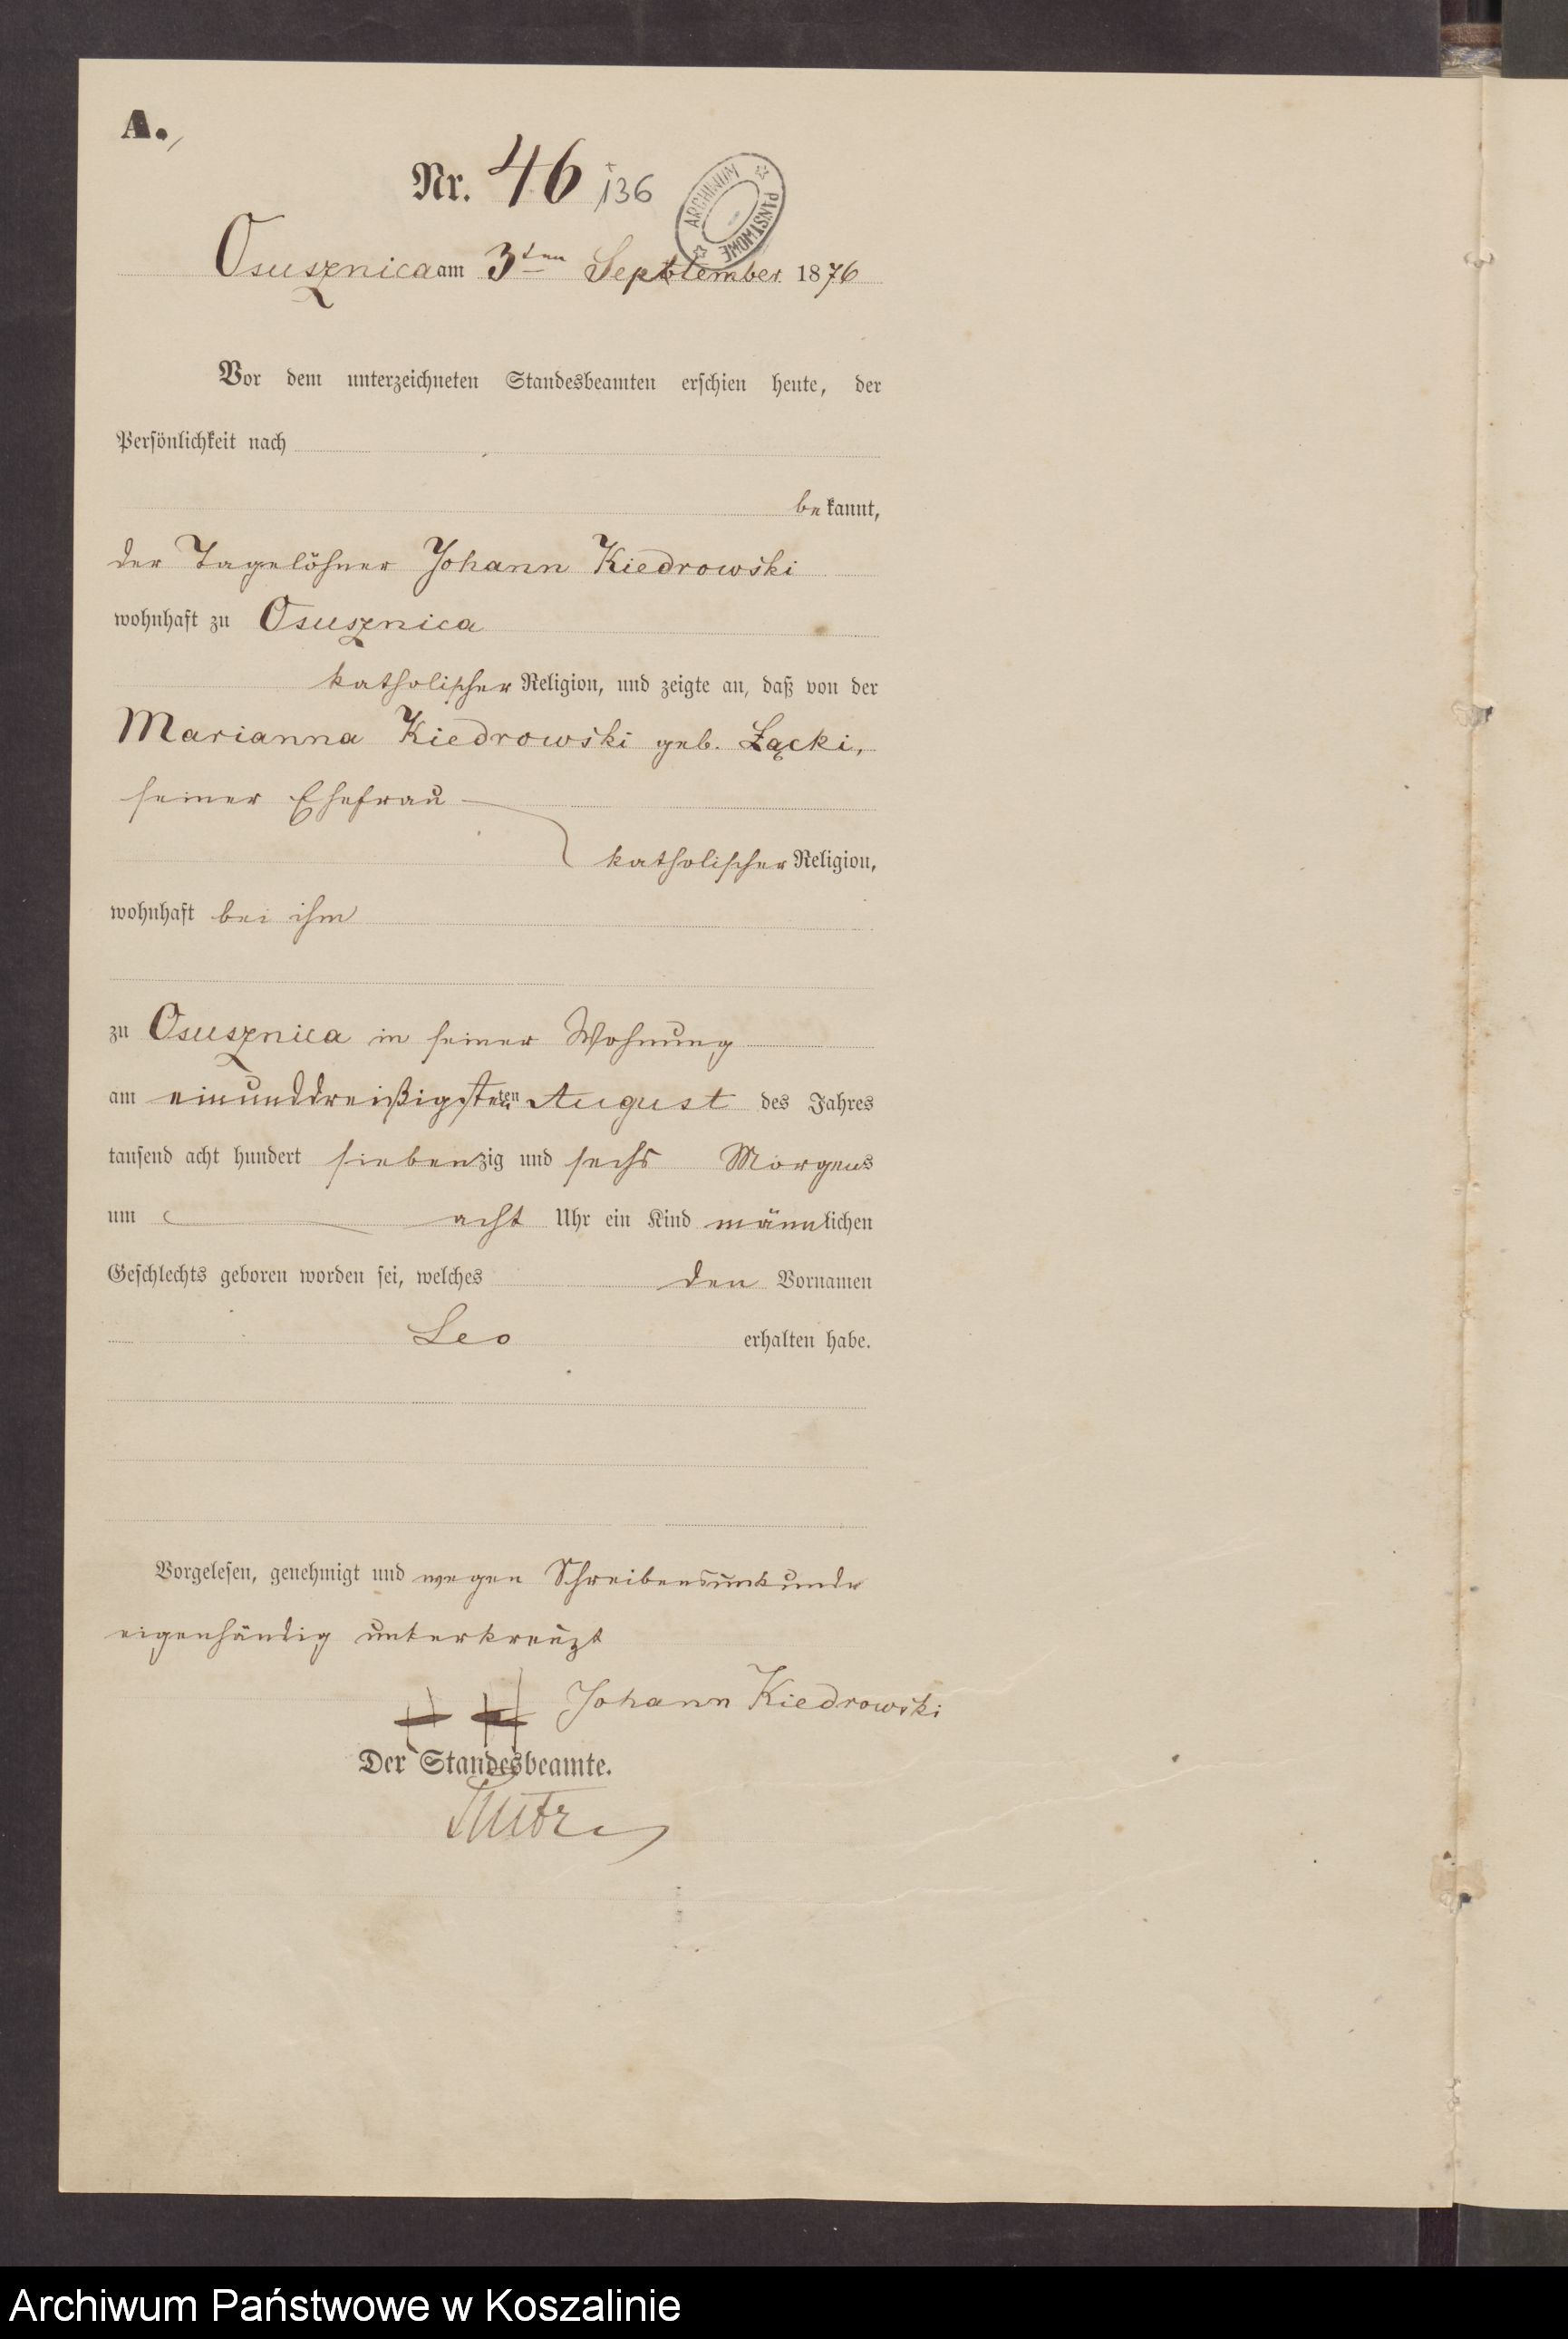 A.
Nr. 46 136
ARCHIWUM PAŃSTWOWE
Osusznica am 3ten September 1876
Vor dem unterzeichneten Standesbeamten erschien heute, der
Persönlichkeit nach
bekannt,
der Tagelöhner Johann Kiedrowski
wohnhaft zu Osusznica
katholischer Religion, und zeigte an, daß von der
Marianna Kiedrowski geb. Łącki,
seiner Ehefrau
katholischer Religion,
wohnhaft bei ihm
zu Osusznica in seiner Wohnung
am einunddreißigsten August des Jahres
tausend acht hundert siebenzig und sechs Morgens
um acht Uhr ein Kind männlichen
Geschlechts geboren worden sei, welches den Vornamen
Leo erhalten habe.
Vorgelesen, genehmigt und wegen Schreibensunkunde
eigenhändig unterkreuzt
Johann Kiedrowski
Der Standesbeamte.
Archiwum Państwowe w Koszalinie